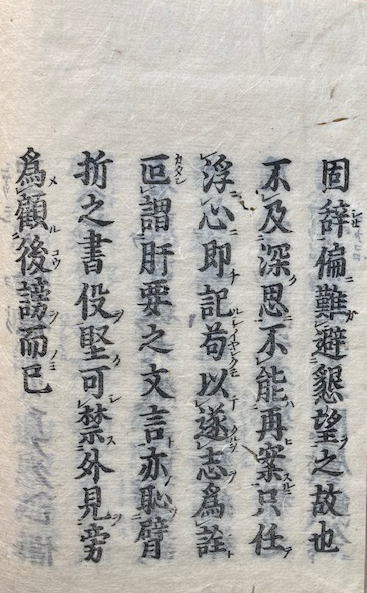 固辭偏難避懇望之故也
不及深思不能再案只任
浮心即記苟以遂志爲詮
叵謂肝要之文言亦恥臂
折之書伇堅可禁外見旁
爲顧後謗而已